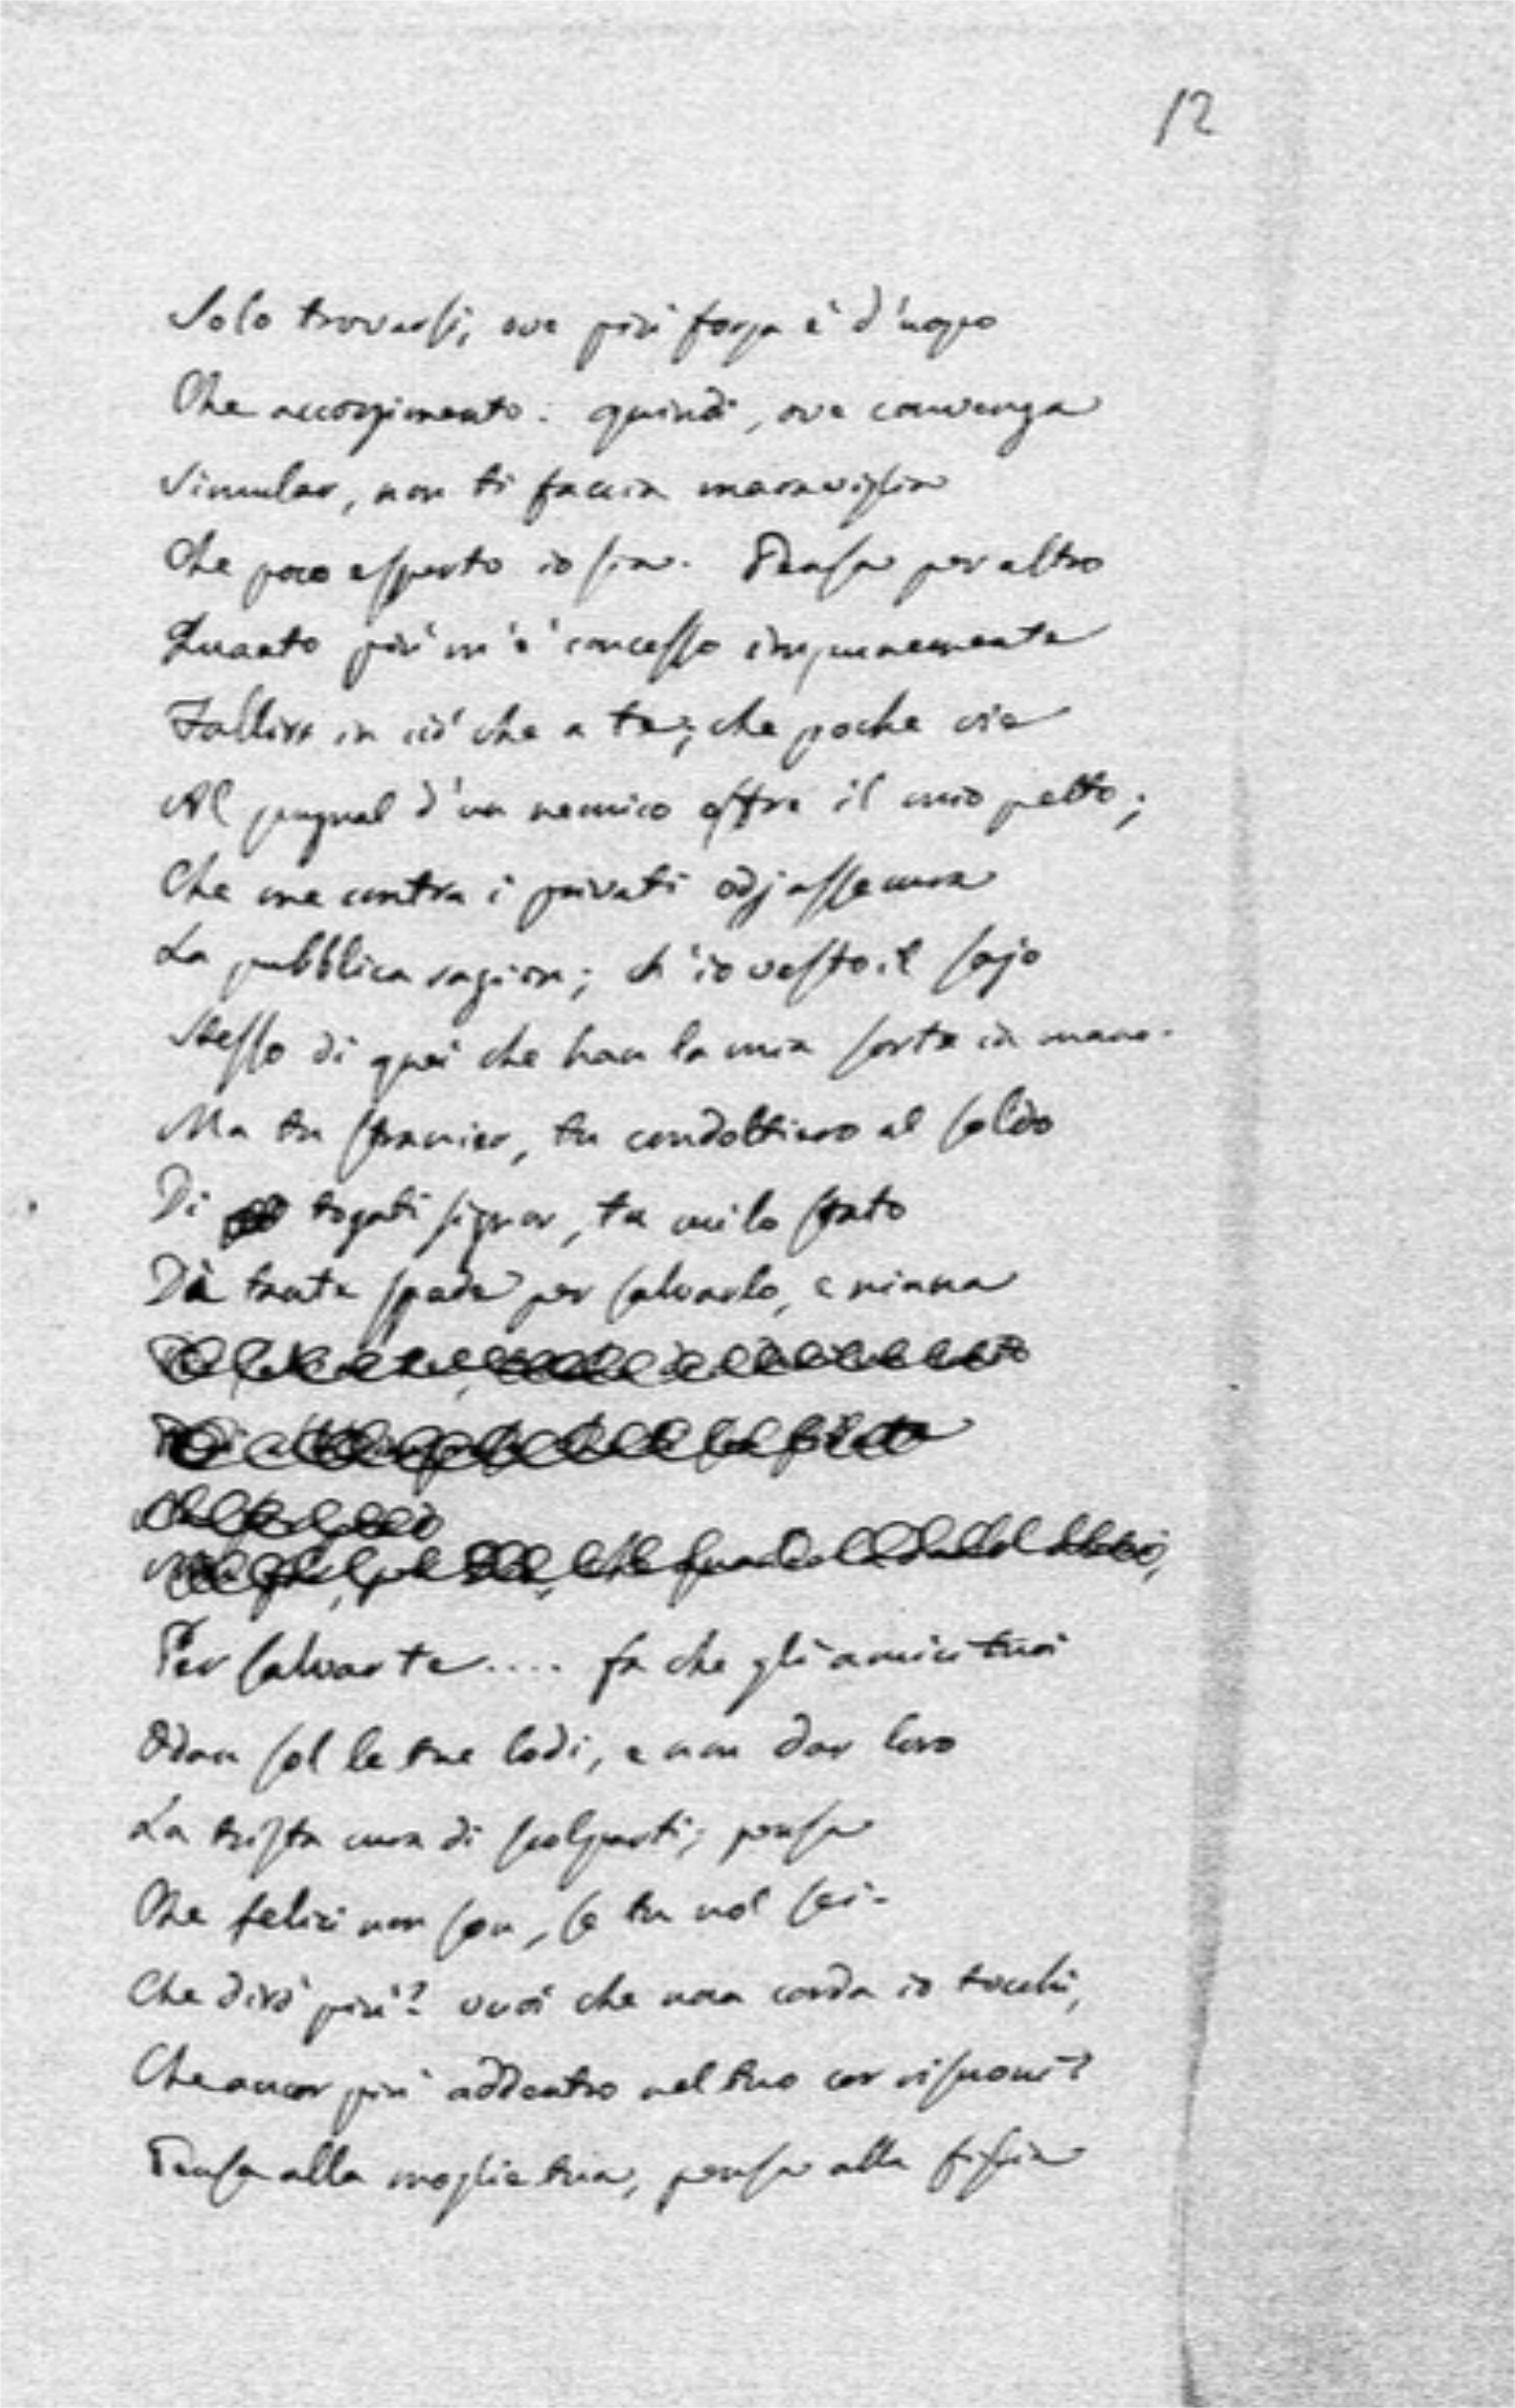 12
Solo trovarsi, ove più forza è d'uopo
Che accorgimento: quindi, ove convenga
Simular, non ti faccia maraviglia
Che poco esperto io sia. Pensa per altro
Quanto più m'è concesso impunemente
Fallire in ciò che a te; che poche vie
Al pugnal d'un nemico offre il mio petto;
Che me contra i privati odj assecura
La pubblica ragion; ch'io vesto il sajo
Stesso di quei che han la mia sorte in mano.
Ma tu stranier, tu condottiero al soldo
Di togati signor, tu cui lo stato
Dà tante spade per salvarlo, e niuna
Per salvarte.... fa che gli amici tuoi
Odan sol le tue lodi, e non dar loro
La trista cura di scolparti; pensa
Che felici non son, se tu nol sei.
Che dirò più? vuoi che una corda io tocchi,
Che ancor più addentro nel tuo cor risuoni?
Pensa alla moglie tua, pensa alla figlia